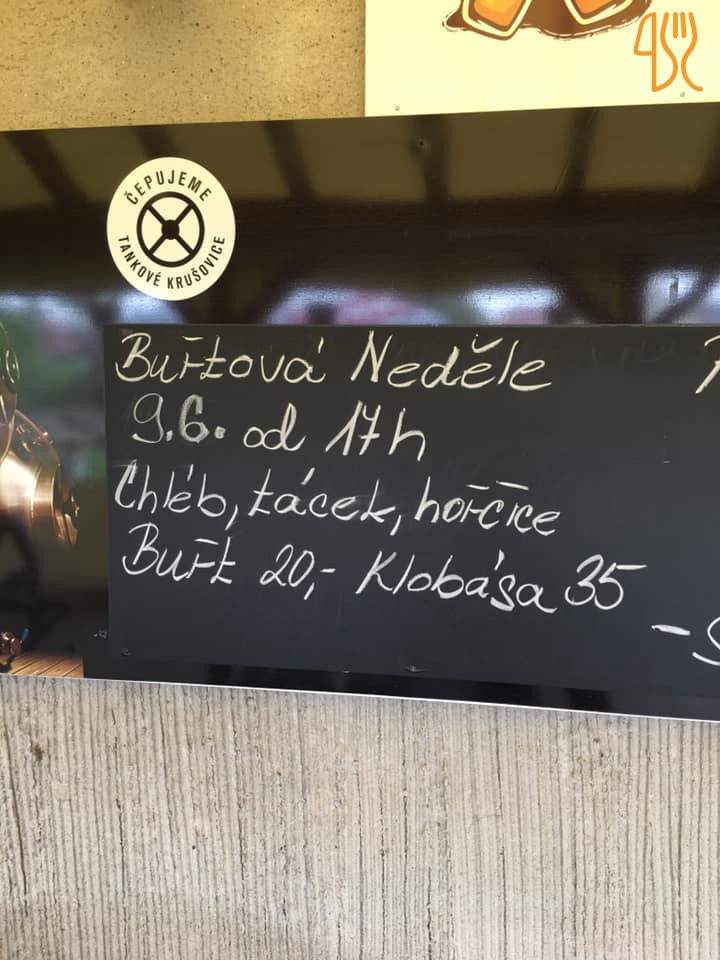 ČEPUJEME
TANKOVÉ KRUŠOVICE
Buřtová Neděle
9.6. od 17h
Chléb, tácek, hořčice
Buřt 20,- Klobása 35